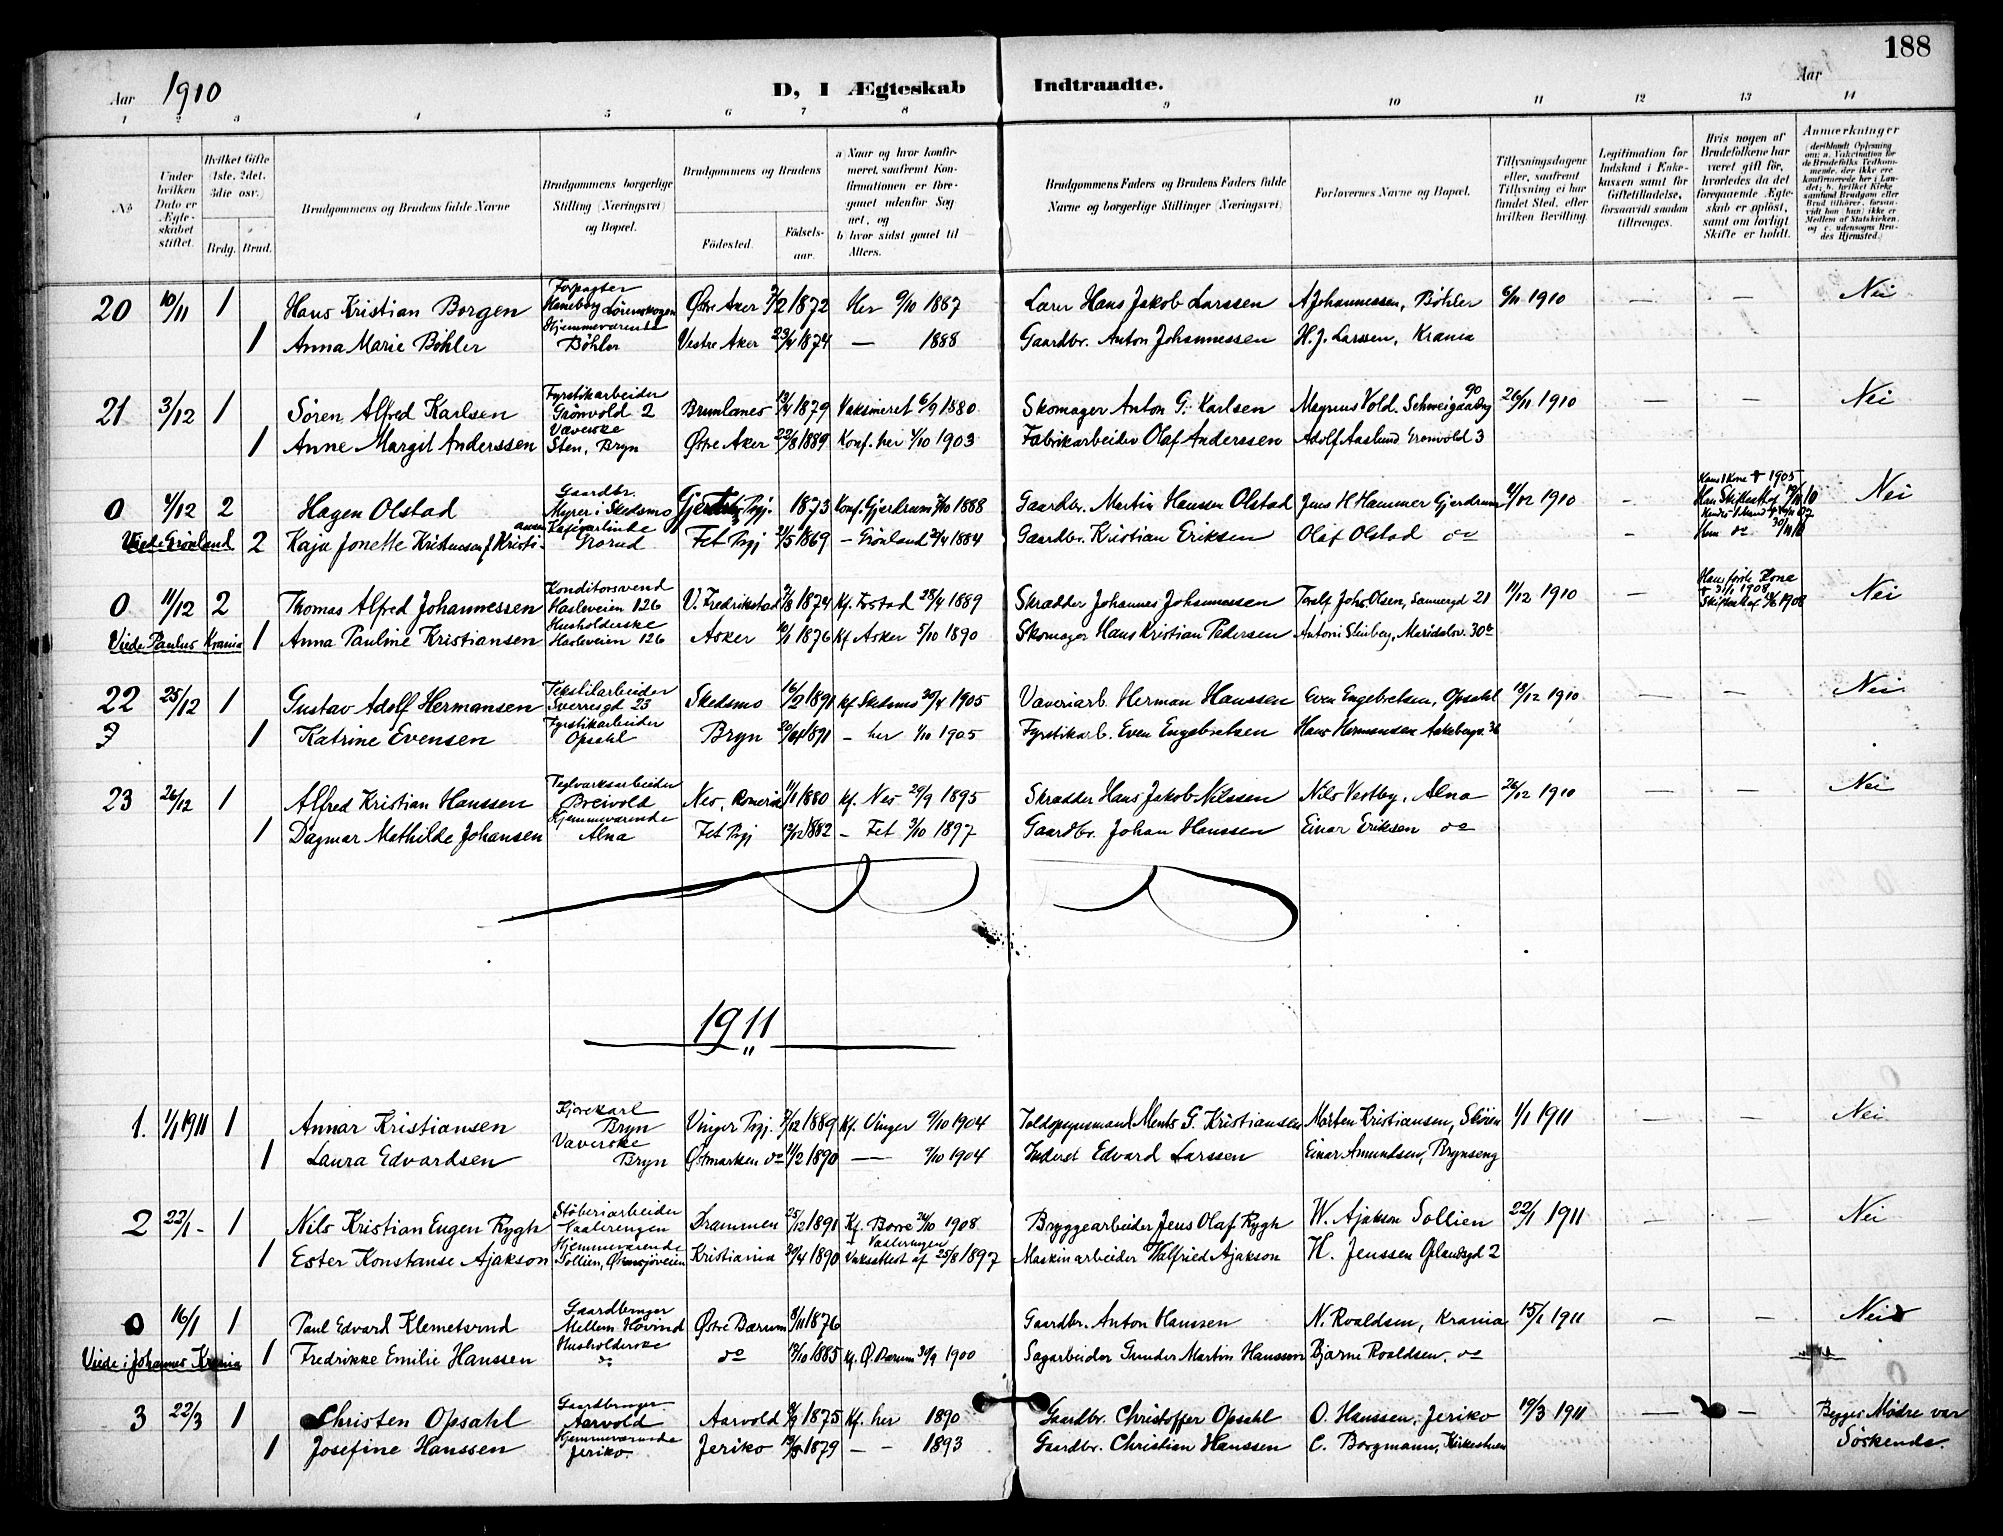 188
Aar 1910 D, I Ægteskab Indtraadte. Aar
1 2 3 4 5 6 7 8 9 10 11 12 13 14
No
Under hvilken Dato er Ægteskabet stiftet.
Hvilket Gifte (1ste, 2det, 3die osv.)
Brdg. Brud.
Brudgommens og Brudens fulde Navne
Brudgommens borgerlige Stilling (Næringsvei) og Bopæl.
Brudgommens og Brudens
Födested. Födselsaar.
a Naar og hvor konfirmeret, saafremt Konfirmationen er foregaaet udenfor Sognet, og b hvor sidst gaaet til Alters.
Brudgommens Faders og Brudens Faders fulde Navne og borgerlige Stillinger (Næringsvei)
Forlovernes Navne og Bopæl.
Tillysningsdagene eller, saafremt Tillysning ei har fundet Sted, efter hvilken Bevilling.
Legitimation for Indskud i Enkekassen samt for Giftetilladelse, forsaavidt saadan tiltrænges.
Hvis nogen af Brudefolkene har været gift för, hvorledes da det foregaaende Ægteskab er oplöst, samt om lovligt Skifte er holdt.
Anmærkninger (deriblandt Oplysning om: a. Vakcination for de Brudefolks Vedkommende, der ikke ere konfirmerede her i Landet; b. hvilket Kirkesamfund Brudgom eller Brud tilhører, forsavidt han (hun) ikke er Medlem af Statskirken, og c. udensogns Brudes Hjemsted.)
20 10/11 1 Hans Kristian Borgen Forpagter Haneborg Lørenskogen Østre Aker 7/2 1872 Her 9/10 1887 Lærer Hans Jakob Larssen A Johannessen, Bøhler 6/11 1910 — — Nei
1 Anna Marie Bøhler Hjemmeværende Bøhler Vestre Aker 23/4 1874 — 1888 Gaardbr. Anton Johannessen H. J. Larssen, Krania
21 3/12 1 Søren Alfred Karlsen Fyrstikarbeider Grønvold 2 Brunlanes 13/4 1879 Vaksineret 6/9 1880 Skomager Anton G. Karlsen Magnus Vold. Schweigaardsg 90 26/11 1910 — — Nei
1 Anne Margit Anderssen Væverske Sten, Bryn Østre Aker 22/8 1889 Konf. her 4/10 1903 Fabrikarbeider Olaf Anderssen Adolf Aaslund Grønvold 3
0 4/12 2 Hagen Olstad Gaardbr. Myrer i Skedsmo Gjerdrum Pgj. 1873 Konf. Gjerdrum 7/10 1888 Gaardbr. Martin Hansen Olstad Jens H Hammer Gjerdrum 4/12 1910 - Hans 1 Kone † 1905 Nei
Viede Grønland 2 Kaja Jonette Kristiansen f. Kristiansen Kafévertinde Grorud Fet Pgj 21/5 1869 — Grønland 2/4 1884 Gaardbr. Kristian Eriksen Olaf Olstad do -
0 11/12 2 Thomas Alfred Johannessen Konditorsvend Hasleveien 126 V. Fredrikstad 7/8 1874 Kf. Fostad 28/4 1889 Skrædder Johannes Johannessen Toralf Johs Olsen, Sannergd 21 11/12 1910 — Hans første Kone † 31/1 1908 Skifteattest af 13/6 1908 Nei
Viede Paulus Krania 1 Anna Pauline Kristiansen Husholderske Hasleveien 126 Asker 10/1 1876 Kf Asker 5/10 1890 Skomager Hans Kristian Pedersen Antoni Stenberg, Maridalsv. 30b
22 25/12 1 Gustav Adolf Hermansen Tekstilarbeider Sverresgd 23 Skedsmo 16/2 1891 Kf Skedsmo 30/4 1905 Væveriarb. Herman Hanssen Even Engebretsen, Opsahl 18/12 1910 — — Nei
1 Katrine Evensen Fyrstikarbeider Opsahl Bryn 20/4 1891 — her 1/10 1905 Fyrstikarb. Even Engebretsen Hans Hermansen Aakebergv. 36
23 26/12 1 Alfred Kristian Hanssen Teglværksarbeider Breivold Nes, Romerike 1/1 1880 Kf. Nes 29/9 1895 Skrædder Hans Jakob Nilssen Nils Vestby, Alna 26/12 1910 — — Nei
1 Dagmar Mathilde Johansen Hjemmeværende Alna Fet Pgj 12/12 1882 — Fet 3/10 1897 Gaardbr. Johan Hanssen Einar Eriksen do
1911
1. 1/1 1911 1 Annar Kristiansen Kjørekarl Bryn Vinger Pgj. 7/12 1889 Kf. Vinger 9/10 1904 Toldopsynsmand Ments G. Kristiansen Morten Kristiansen, Skøien 1/1 1911 — — Nei
1 Laura Edvardsen Væverske Bryn Østmarken do 11/2 1890 — 9/10 1904 Inderst Edvard Larssen Einar Amundsen, Brynseng
2 22/1 - 1 Nils Kristian Eugen Rygh Støberiarbeider Vaalerengen Drammen 25/12 1891 Kf. Borre 24/10 1908 Bryggearbeider Jens Olaf Rygh W. Ajakson Sollien 22/1 1911 — — Nei
1 Ester Konstanse Ajakson Hjemmeværende Sollien, Østensjøveien Kristiania 20/4 1890 † Vaaleringen Vaksattest af 25/8 1897 Maskinarbeider Walfried Ajakson H. Jenssen Ølandsgd 2
0 16/1 1 Paul Edvard Klemetsrud Gaardbruger Mellem Hovind Østre Bærum 8/11 1876 Gaardbr. Anton Hanssen N. Roaldsen, Krania 15/1 1911 — — Nei
Viede i Johannes Krania 1 Fredrikke Emilie Hanssen Husholderske do do 13/10 1885 Kf. Ø. Bærum 30/9 1900 Sagarbeider Gunder Martin Hanssen Bjarne Roaldsen. do
3 22/3 1 Christen Opsahl Gaardbruger Aarvold Aarvold 3/9 1875 Kf. her 1890 Gaardbr. Christoffer Opsahl O. Hanssen, Jeriko 19/3 1911 — — Begges Mødre var Søskende.
1 Josefine Hanssen Hjemmeværende Jeriko. Jeriko 1879 — - 1893 Gaardbr. Christian Hanssen C. Borgmann, Kirkestuen